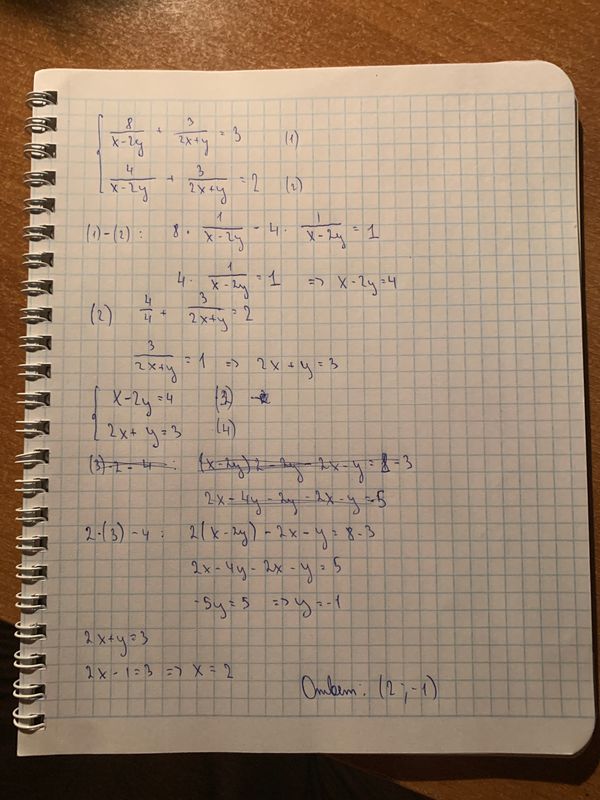 8/(x-2y) + 3/(2x+y) = 3 (1)
4/(x-2y) + 3/(2x+y) = 2 (2)
(1)-(2): 8 · 1/(x-2y) - 4 · 1/(x-2y) = 1
4 · 1/(x-2y) = 1 => x-2y=4
(2) 4/4 + 3/(2x+y) = 2
3/(2x+y) = 1 => 2x+y=3
x-2y=4 (3)
2x+y=3 (4)
(3)·2-4: (x-2y)2-2y-2x-y=8-3
2x-4y-2y-2x-y=5
2·(3)-4: 2(x-2y)-2x-y=8-3
2x-4y-2x-y=5
-5y=5 => y=-1
2x+y=3
2x-1=3 => x=2
Ответ: (2;-1)